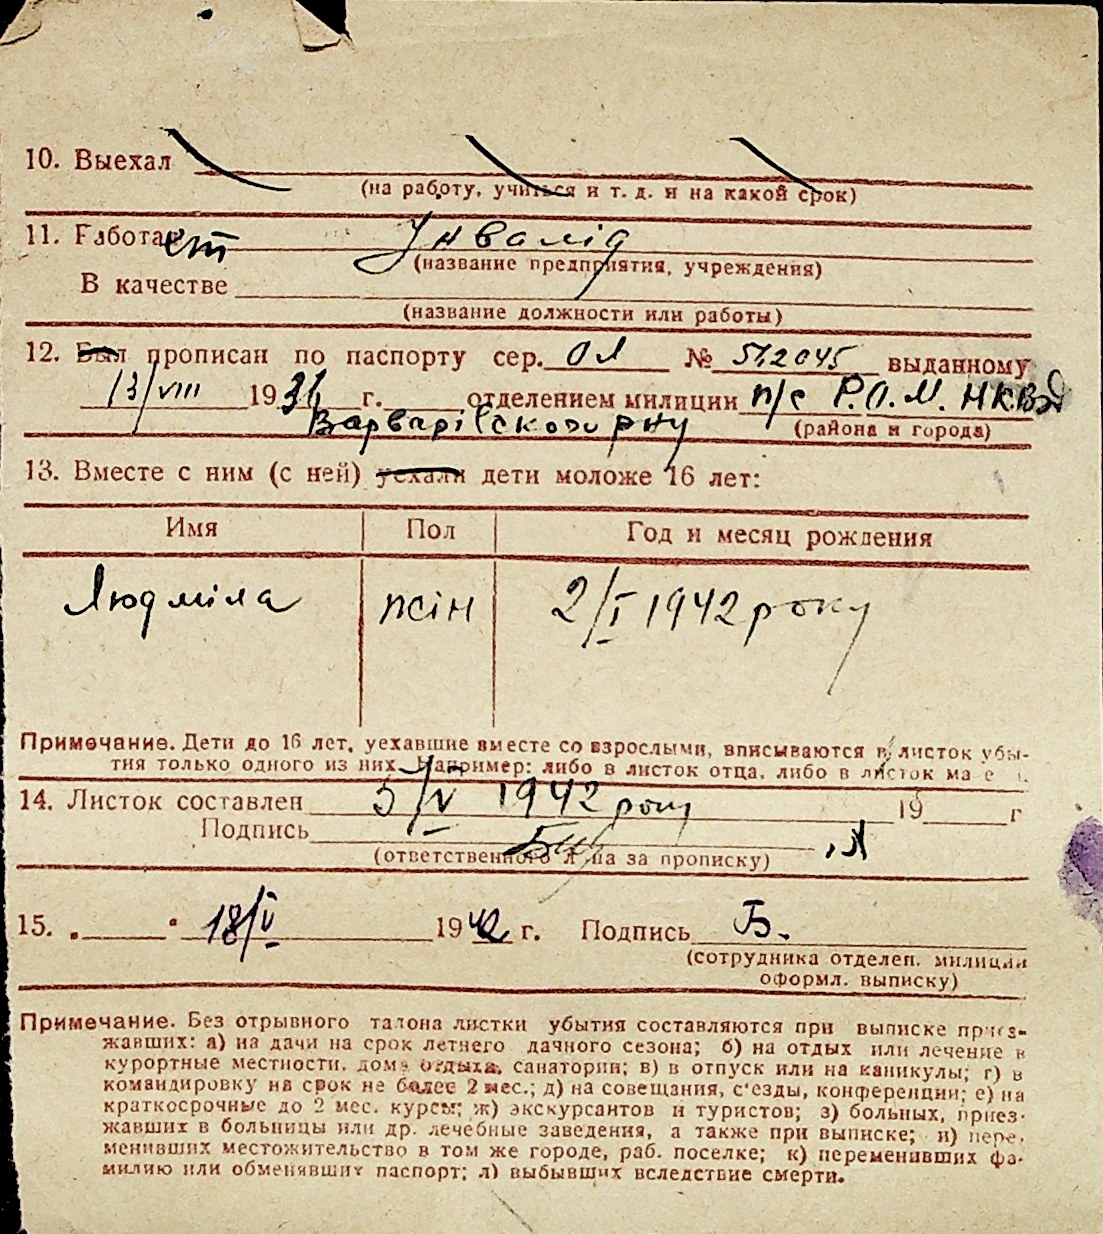 10. Выехал
(на работу, учиться и т. д. и на какой срок)
11. Работает Інвалід
(название предприятия, учреждения)
В качестве
(название должности или работы)
12. Был прописан по паспорту сер. ОЛ № 512045 выданному
13/VIII 1931 г. отделением милиции п/с Р.О.М. НКВД
Варварівського рну (района и города)
13. Вместе с ним (с ней) уехали дети моложе 16 лет:
Имя Пол Год и месяц рождения
Людміла жін 2/I 1942 року
Примечание. Дети до 16 лет, уехавшие вместе со взрослыми, вписываются в листок убы-
тия только одного из них. Например: либо в листок отца, либо в листок ма е
14. Листок составлен 5/V 1942 року 19 г
Подпись
(ответственного л на за прописку)
15. „ “ 18/V 1942 г. Подпись Б.
(сотрудника отделен. милиции
оформл. выписку)
Примечание. Без отрывного талона листки убытия составляются при выписке приез-
жавших: а) на дачи на срок летнего дачного сезона; б) на отдых или лечение в
курортные местности, дома отдыха, санатории; в) в отпуск или на каникулы; г) в
командировку на срок не более 2 мес.; д) на совещания, с'езды, конференции; е) на
краткосрочные до 2 мес. курсы; ж) экскурсантов и туристов; з) больных, приез-
жавших в больницы или др. лечебные заведения, а также при выписке; и) пере-
менивших местожительство в том же городе, раб. поселке; к) переменивших фа-
милию или обменявших паспорт; л) выбывших вследствие смерти.